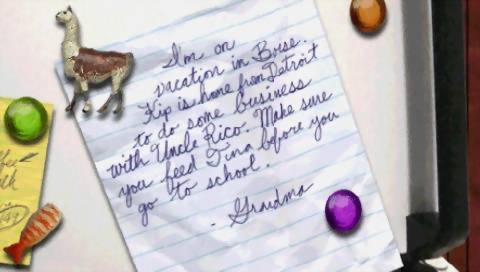 I'm on
vacation in Boise.
Kip is home from Detroit
to do some business
with Uncle Rico. Make sure
you feed Tina before you
go to school.
- Grandma